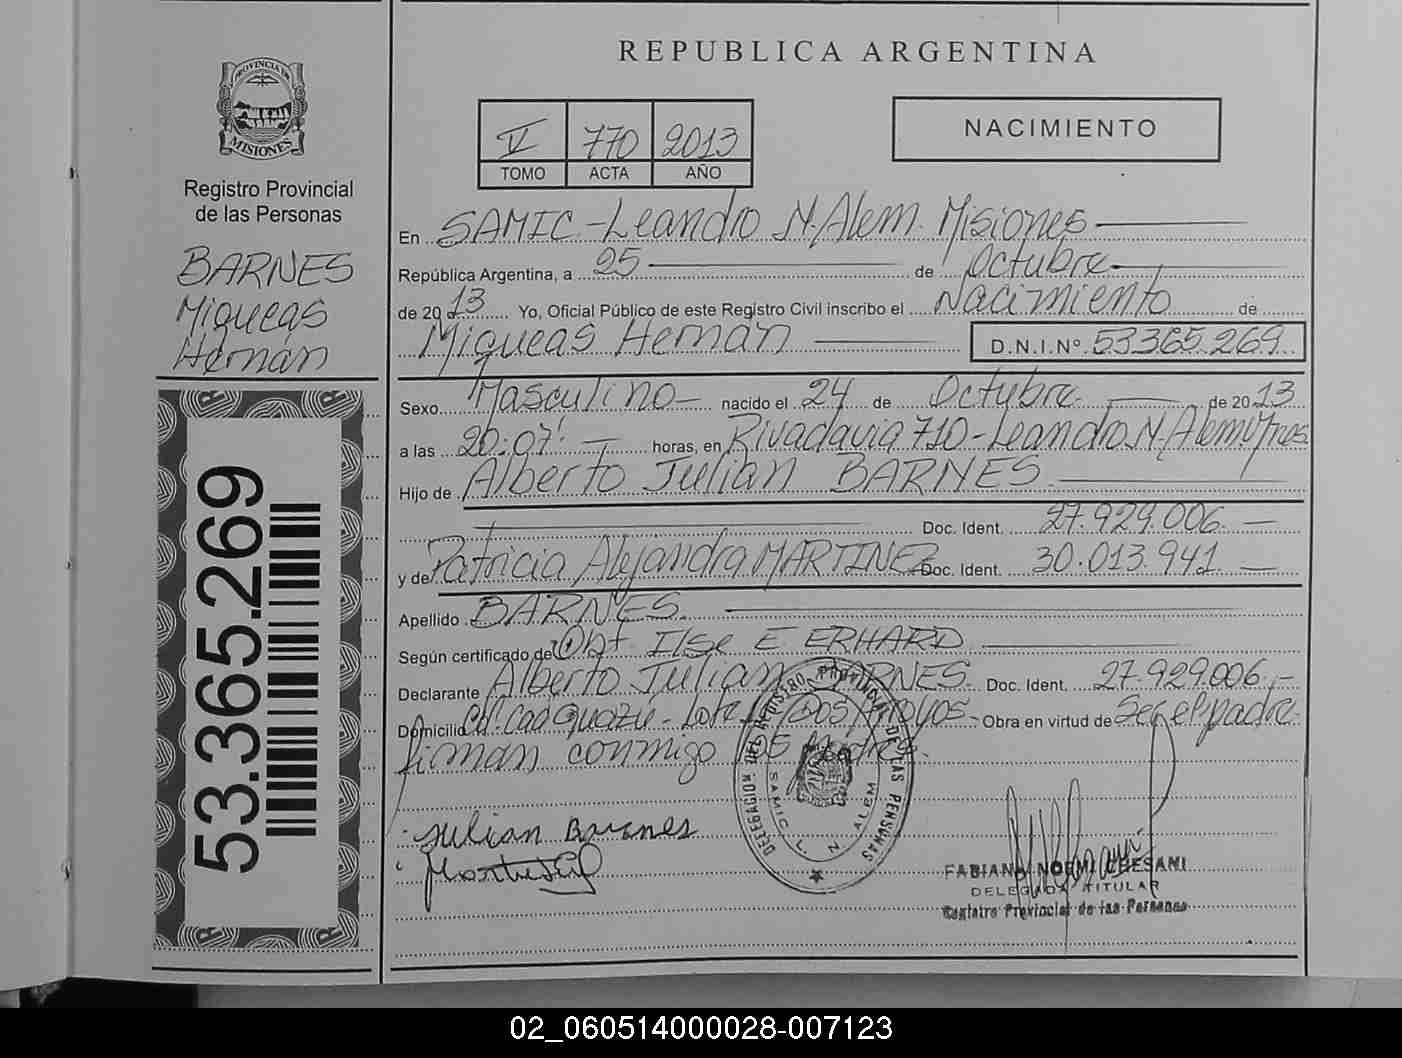 REPUBLICA ARGENTINA
PROVINCIA DE
MISIONES
Registro Provincial
de las Personas
BARNES
Miqueas
Hernán
53.365.269
V 770 2013
TOMO ACTA AÑO
NACIMIENTO
En SAMIC - Leandro N. Alem. Misiones
República Argentina, a 25 de Octubre
de 2013 Yo, Oficial Público de este Registro Civil inscribo el Nacimiento de
Miqueas Hernán D.N.I.Nº 53365.269
Sexo Masculino nacido el 24 de Octubre de 2013
a las 20:07' horas, en Rivadavia 710 - Leandro N. Alem Mnes
Hijo de Alberto Julian BARNES
Doc. Ident. 27.929.006.
y de Patricia Alejandra MARTINEZ Doc. Ident. 30.013.941
Apellido BARNES
Según certificado de Obst. Ilse E ERHARD
Declarante Alberto Julian BARNES. Doc. Ident. 27.929.006.-
Domicilio Caá Guazú - Lote Dos Arroyos - Obra en virtud de Ser el padre.
firman conmigo los padres.
Julian Barnes
DELEGACION DEL REGISTRO PROVINCIAL DE LAS PERSONAS
SAMIC L. N. ALEM
FABIANA NOEMI CHESANI
DELEGADA TITULAR
Registro Provincial de las Personas
02_060514000028-007123